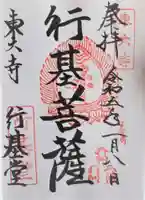 奉拝 令和五年一月八日
行基菩薩
東大寺 行基堂